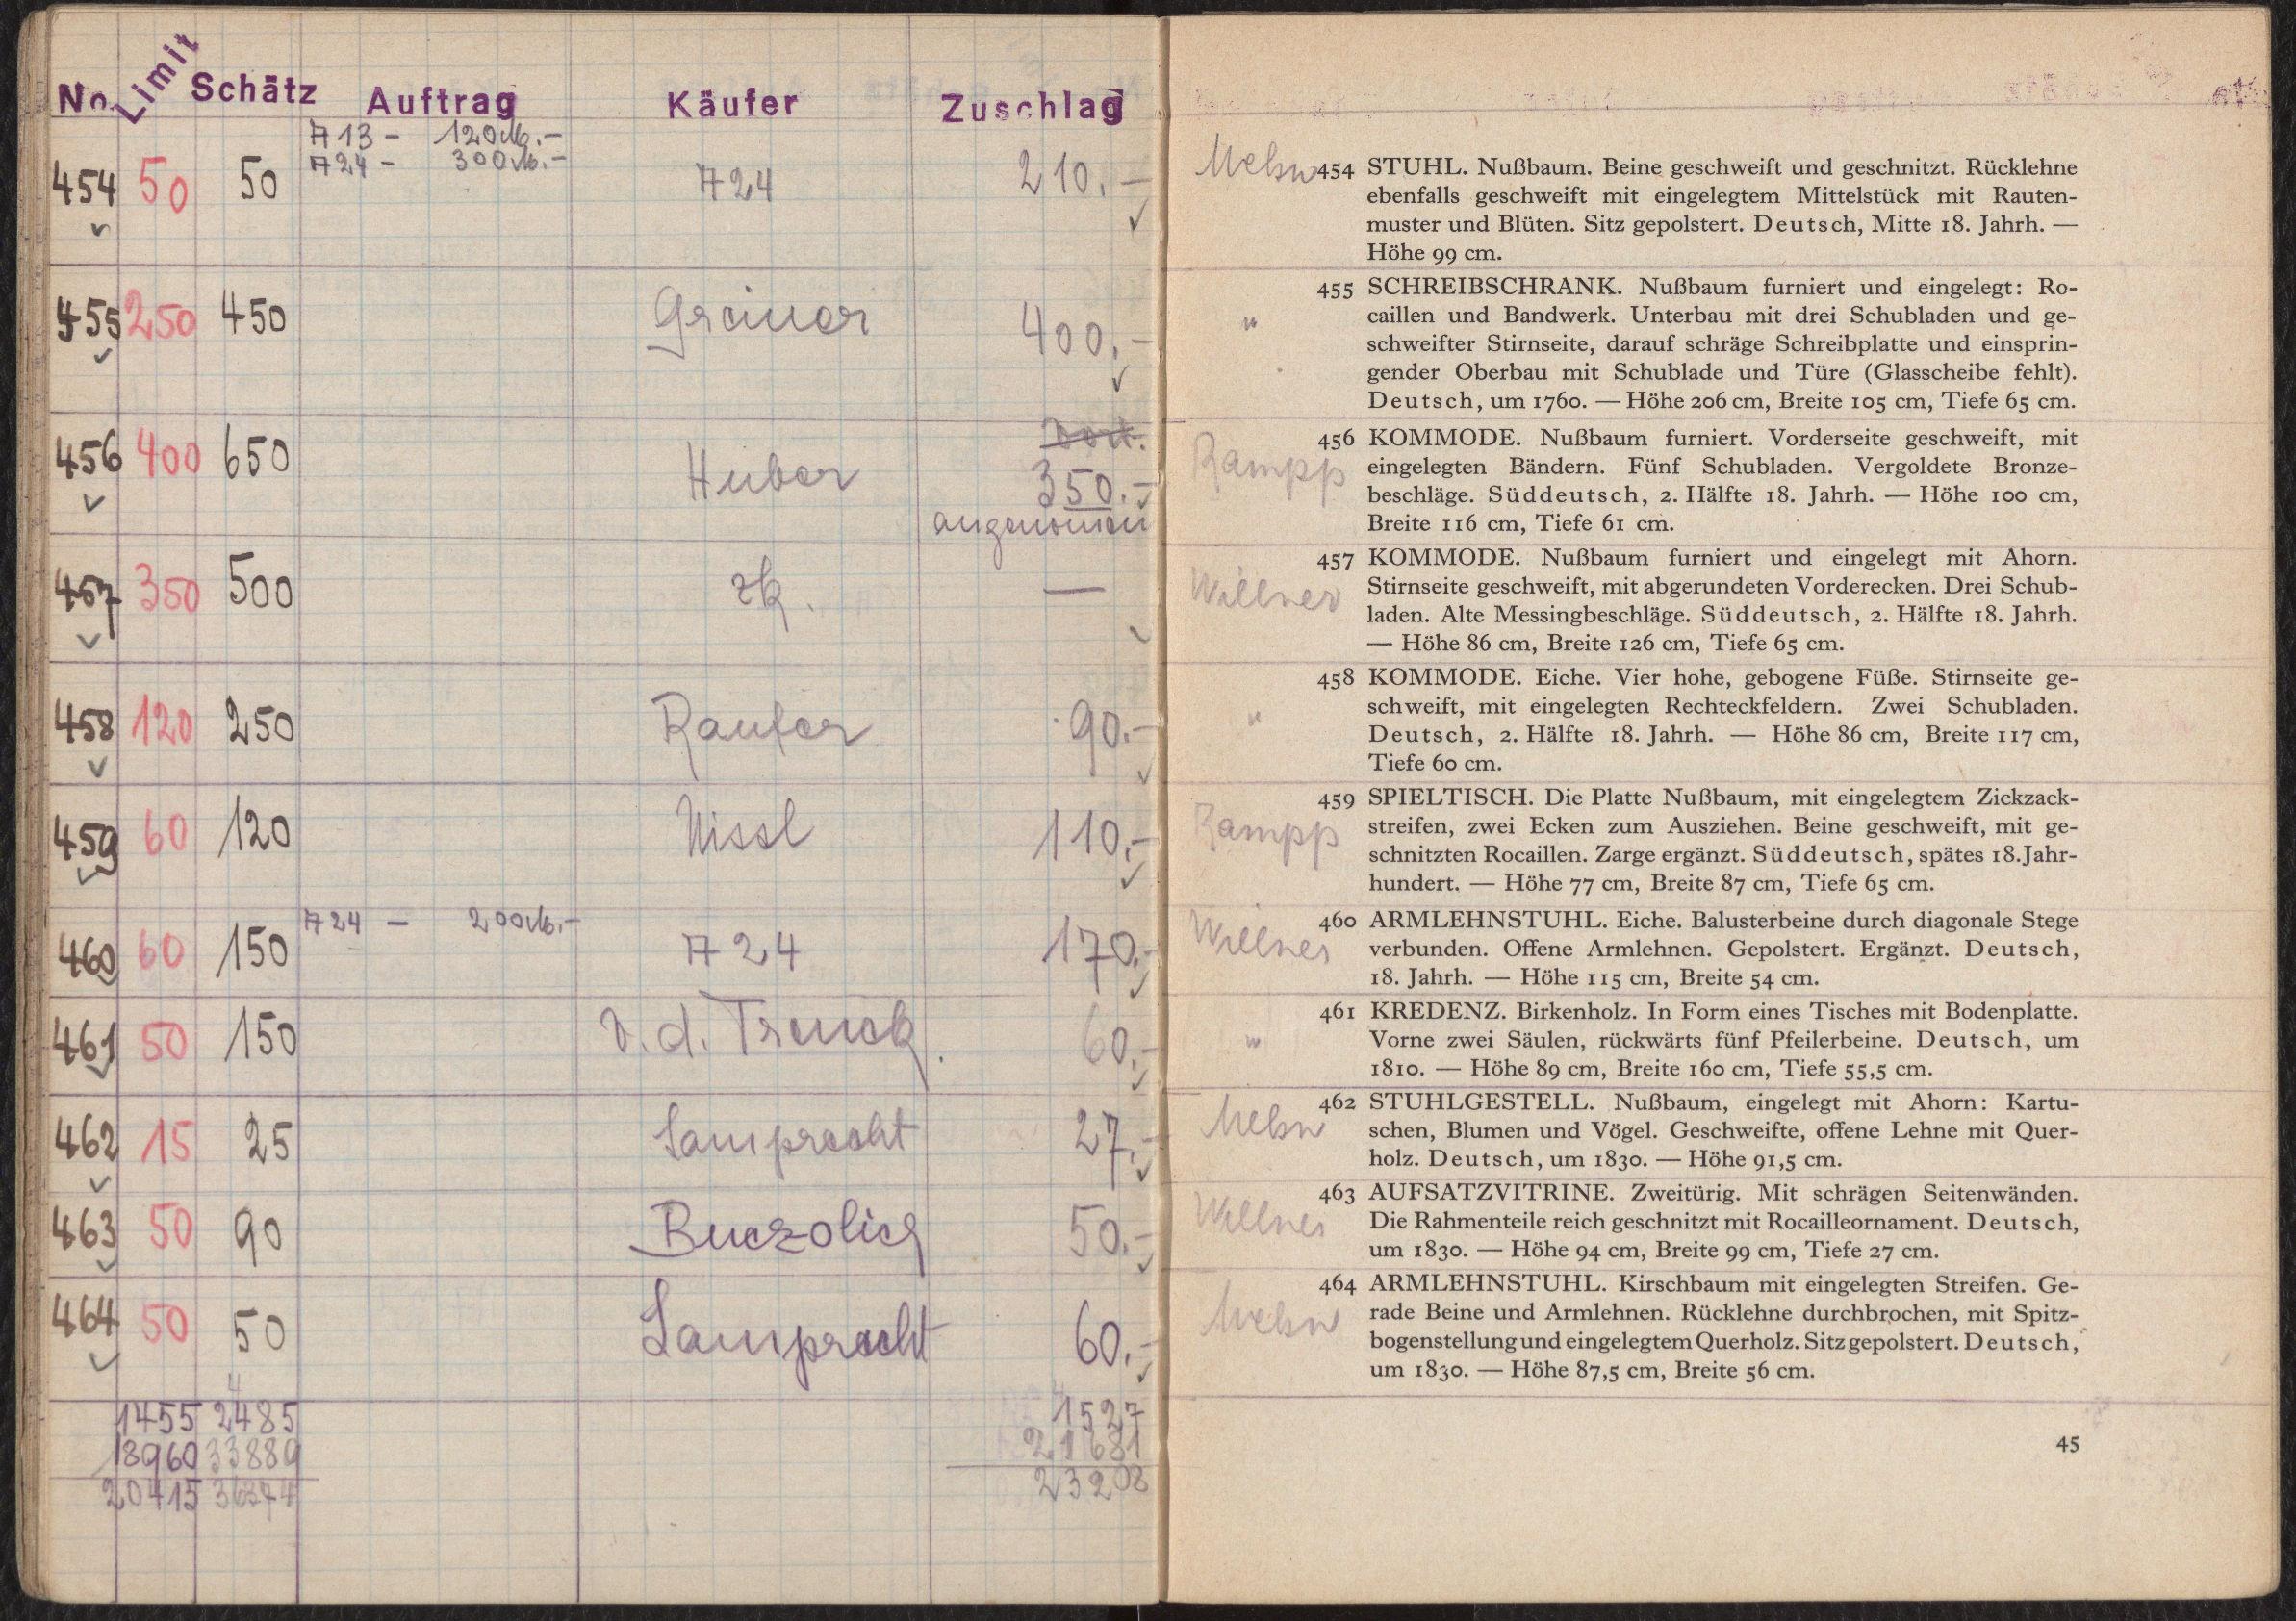 No. Limit Schätz Auftrag Käufer Zuschlag
A 13 - 120 M.-
A 24 - 300 M.-
454 50 50 A 24 210.-
455 250 450 Greiner 400.-
456 400 650 Huber 350.-
angenomen
457 350 500 zk. —
458 120 250 Raufer 90.-
459 60 120 Nissl 110.-
A 24 - 200 M.-
460 60 150 A 24 170.-
461 50 150 v. d. Trenck 60.-
462 15 25 Lamprecht 27.-
463 50 90 Buczolich 50.-
464 50 50 Lamprecht 60.-
1455 2485 1527
18960 33889 21681
20415 36374 23208
454 STUHL. Nußbaum. Beine geschweift und geschnitzt. Rücklehne
ebenfalls geschweift mit eingelegtem Mittelstück mit Rauten-
muster und Blüten. Sitz gepolstert. Deutsch, Mitte 18. Jahrh. —
Höhe 99 cm.
455 SCHREIBSCHRANK. Nußbaum furniert und eingelegt: Ro-
" caillen und Bandwerk. Unterbau mit drei Schubladen und ge-
schweifter Stirnseite, darauf schräge Schreibplatte und einsprin-
gender Oberbau mit Schublade und Türe (Glasscheibe fehlt).
Deutsch, um 1760. — Höhe 206 cm, Breite 105 cm, Tiefe 65 cm.
456 KOMMODE. Nußbaum furniert. Vorderseite geschweift, mit
Rampp eingelegten Bändern. Fünf Schubladen. Vergoldete Bronze-
beschläge. Süddeutsch, 2. Hälfte 18. Jahrh. — Höhe 100 cm,
Breite 116 cm, Tiefe 61 cm.
457 KOMMODE. Nußbaum furniert und eingelegt mit Ahorn.
Willner Stirnseite geschweift, mit abgerundeten Vorderecken. Drei Schub-
laden. Alte Messingbeschläge. Süddeutsch, 2. Hälfte 18. Jahrh.
— Höhe 86 cm, Breite 126 cm, Tiefe 65 cm.
458 KOMMODE. Eiche. Vier hohe, gebogene Füße. Stirnseite ge-
" schweift, mit eingelegten Rechteckfeldern. Zwei Schubladen.
Deutsch, 2. Hälfte 18. Jahrh. — Höhe 86 cm, Breite 117 cm,
Tiefe 60 cm.
459 SPIELTISCH. Die Platte Nußbaum, mit eingelegtem Zickzack-
Rampp streifen, zwei Ecken zum Ausziehen. Beine geschweift, mit ge-
schnitzten Rocaillen. Zarge ergänzt. Süddeutsch, spätes 18. Jahr-
hundert. — Höhe 77 cm, Breite 87 cm, Tiefe 65 cm.
460 ARMLEHNSTUHL. Eiche. Balusterbeine durch diagonale Stege
Willner verbunden. Offene Armlehnen. Gepolstert. Ergänzt. Deutsch,
18. Jahrh. — Höhe 115 cm, Breite 54 cm.
461 KREDENZ. Birkenholz. In Form eines Tisches mit Bodenplatte.
" Vorne zwei Säulen, rückwärts fünf Pfeilerbeine. Deutsch, um
1810. — Höhe 89 cm, Breite 160 cm, Tiefe 55,5 cm.
462 STUHLGESTELL. Nußbaum, eingelegt mit Ahorn: Kartu-
schen, Blumen und Vögel. Geschweifte, offene Lehne mit Quer-
holz. Deutsch, um 1830. — Höhe 91,5 cm.
463 AUFSATZVITRINE. Zweitürig. Mit schrägen Seitenwänden.
Willner Die Rahmenteile reich geschnitzt mit Rocailleornament. Deutsch,
um 1830. — Höhe 94 cm, Breite 99 cm, Tiefe 27 cm.
464 ARMLEHNSTUHL. Kirschbaum mit eingelegten Streifen. Ge-
rade Beine und Armlehnen. Rücklehne durchbrochen, mit Spitz-
bogenstellung und eingelegtem Querholz. Sitz gepolstert. Deutsch,
um 1830. — Höhe 87,5 cm, Breite 56 cm.
45